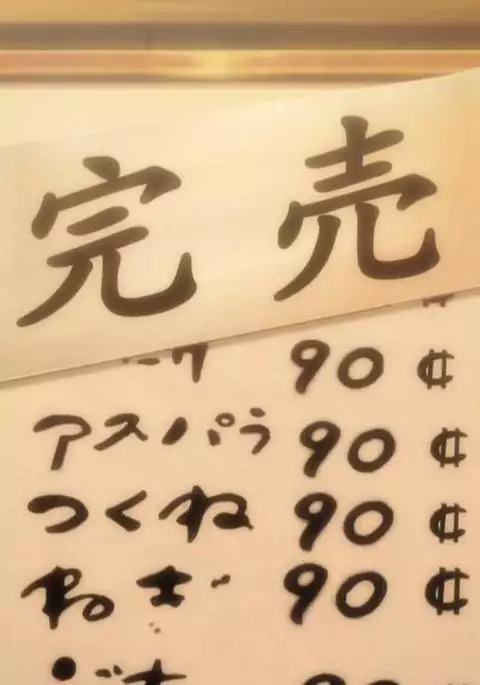 完売
ーク 90 ₵
アスパラ 90 ₵
つくね 90 ₵
ねぎ 90 ₵
90